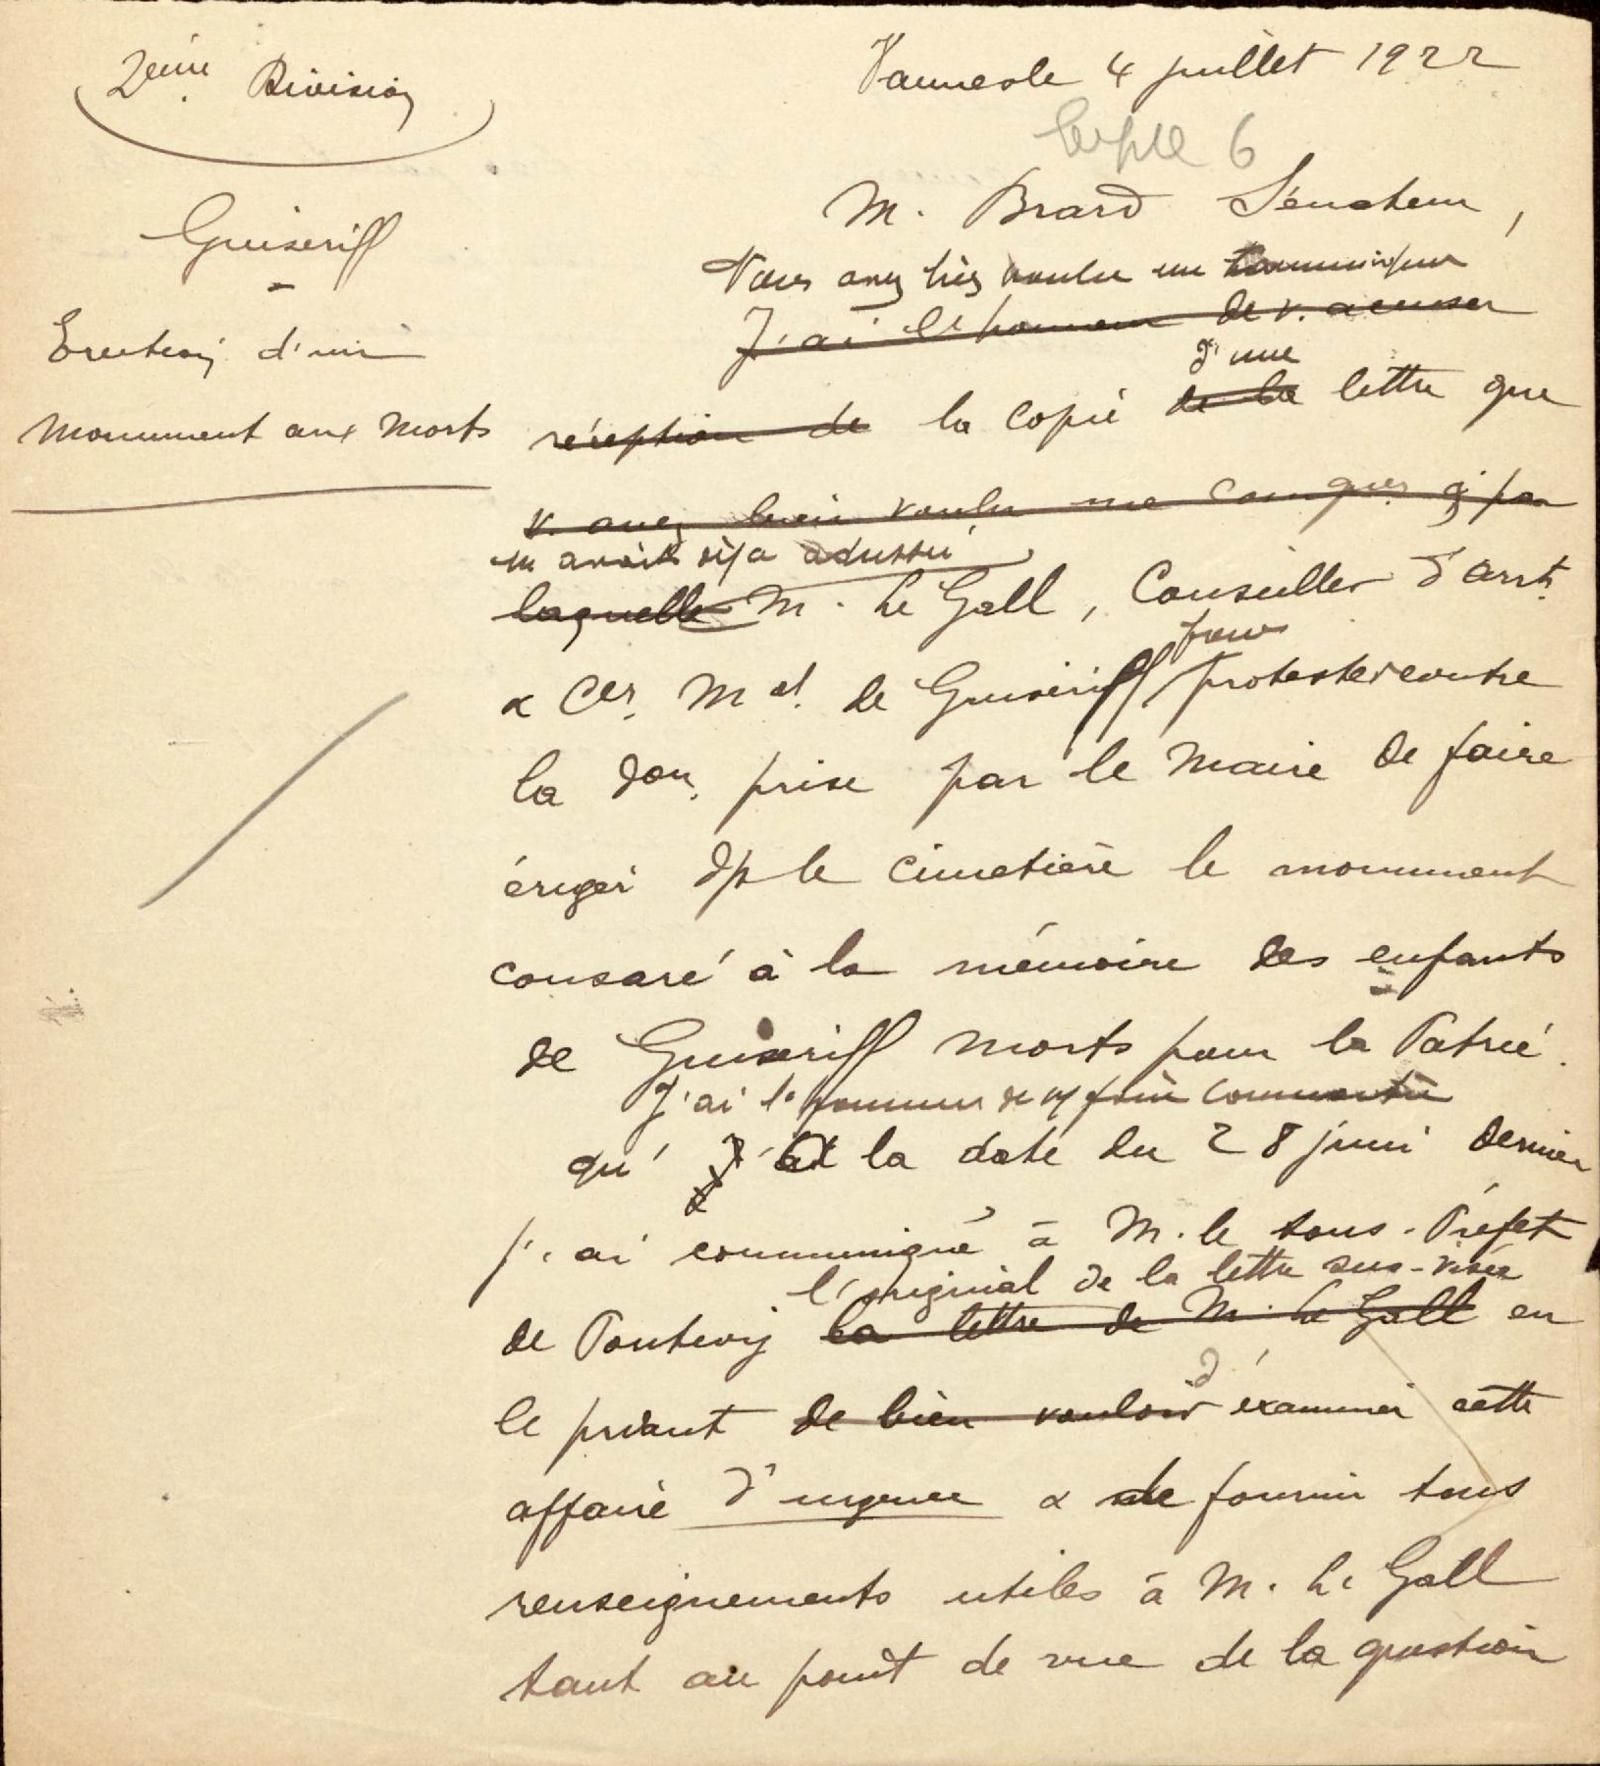 2ème Division
Guiscriff
-
Erection d'un
Monument aux Morts
Vannes le 4 juillet 1922
6
M. Brard Sénateur,
Vous avez bien voulu me communiquer
J'ai l'honneur de v. accuser
d'une
réception de la copie de la lettre que
v. avez bien voulu me par
m'avait déjà adressée
laquelle M. Le Gall, Conseiller d'arrt
pour
& Cer. Mal. de Guiscriff protester contre
la don. prise par le Maire de faire
ériger ds le cimetière le monument
consacré à la mémoire des enfants
de Guiscriff morts pour la Patrie.
J'ai l'honneur de v. faire connaître
qu' à la date du 28 juin dernier
j'ai communiqué à M. le Sous-Préfet
l'original de la lettre sus-visée
de Pontivy la lettre de M. Le Gall en
le priant de bien vouloir d'examiner cette
affaire d'urgence & de fournir tous
renseignements utiles à M. Le Gall
tant au point de vue de la question